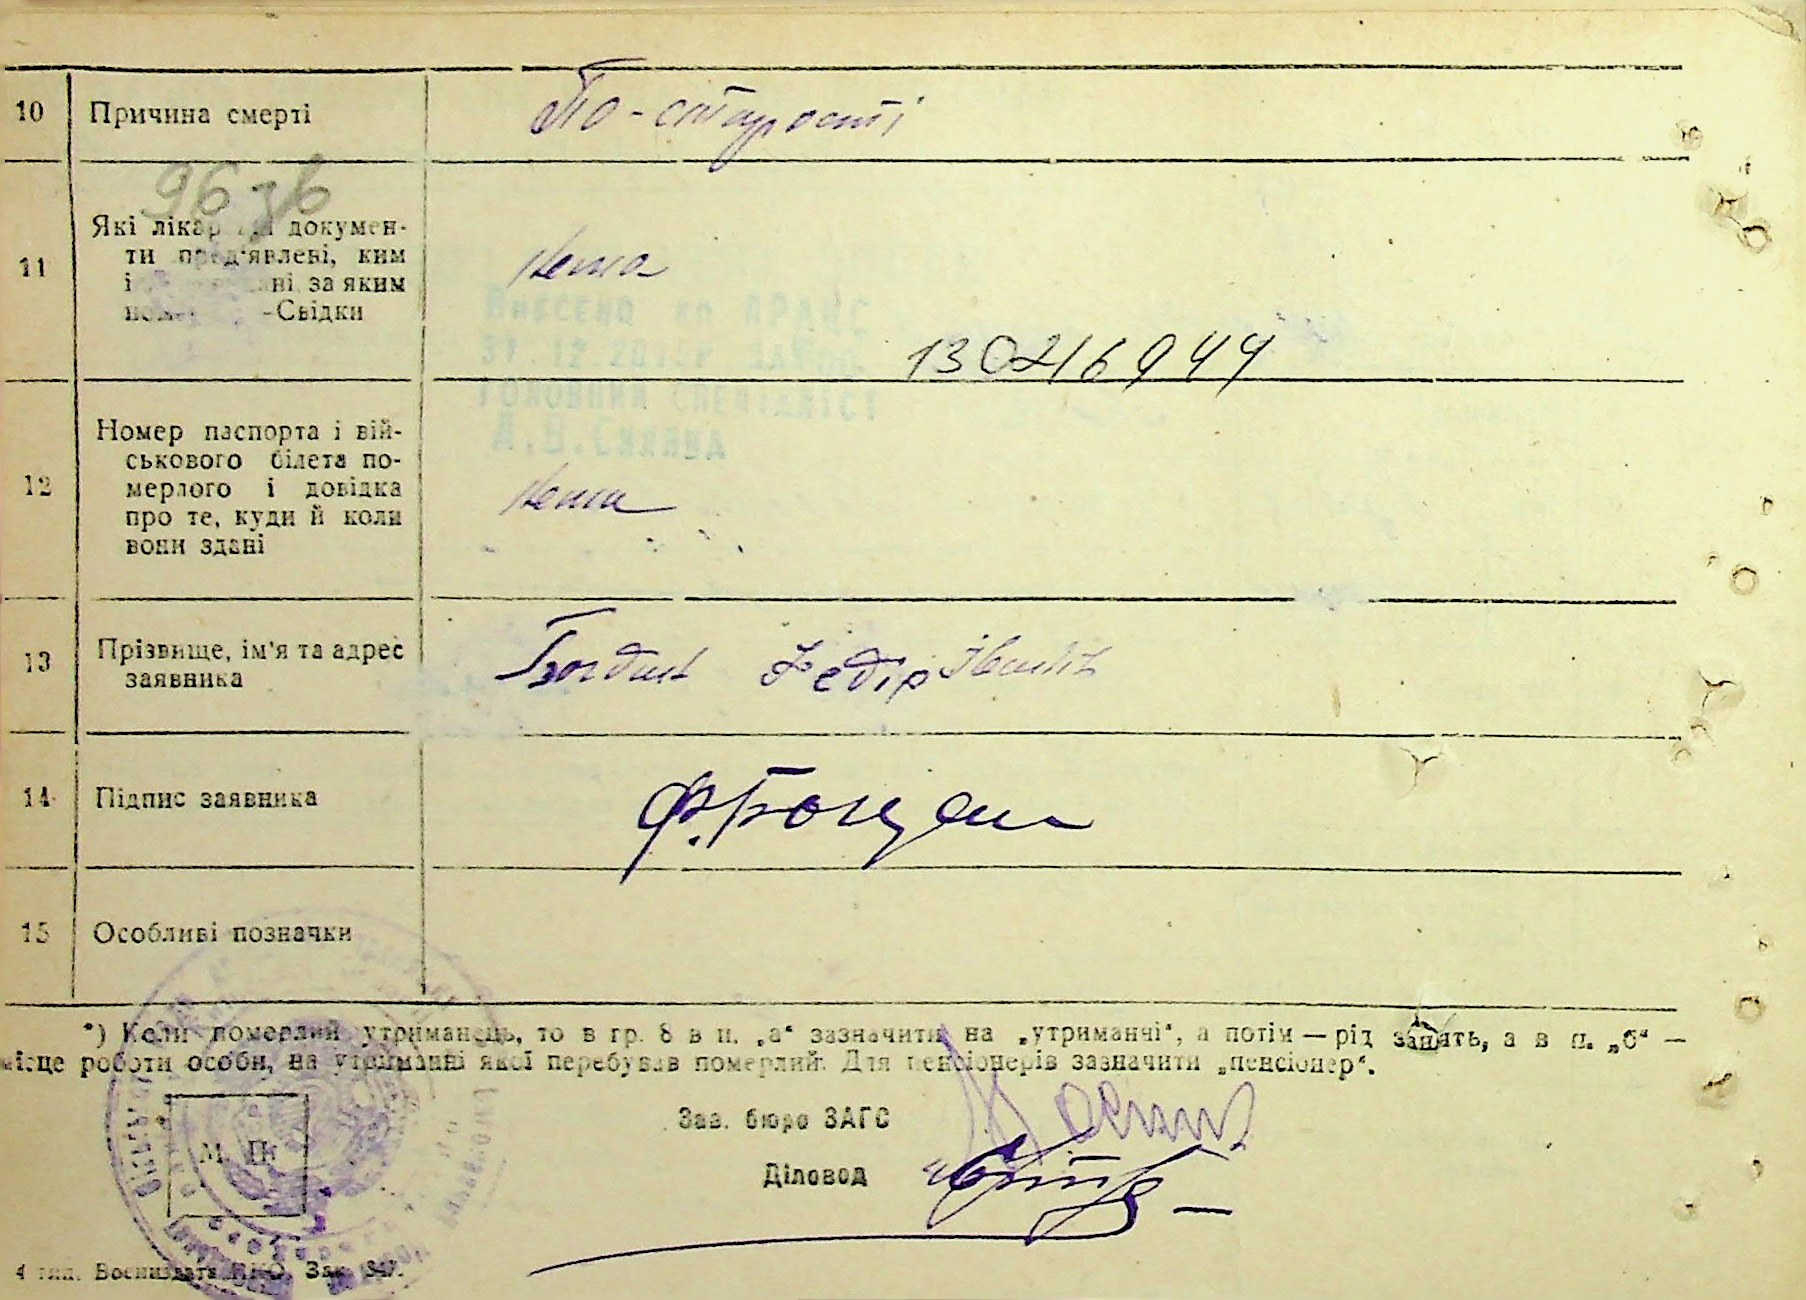 10 Причина смерті По-старості
96 зв
11 Які лікар докумен-
ти пред'явлені, ким
і за яким
-Свідки
Нема
Внесено до ДРАЦС
31.12.201
ГОЛОВНИЙ СПЕЦІАЛІСТ
130216944
12 Номер паспорта і вій-
ськового білета по-
мерлого і довідка
про те, куди й коли
вони здані
Нема
13 Прізвище, ім'я та адрес
заявника
Богдан Федір Іванів
14 Підпис заявника Ф.Богдан
15 Особливі позначки
*) Коли померлий утриманець, то в гр. 8 в п. „а“ зазначити на „утриманні“, а потім — рід занять, а в п. „б“ —
місце роботи особи, на утриманні якої перебував померлий. Для пенсіонерів зазначити „пенсіонер“.
Зав. бюро ЗАГС
М. П.
Діловод
4 тип. Воениздата НКО. Зак. 347.